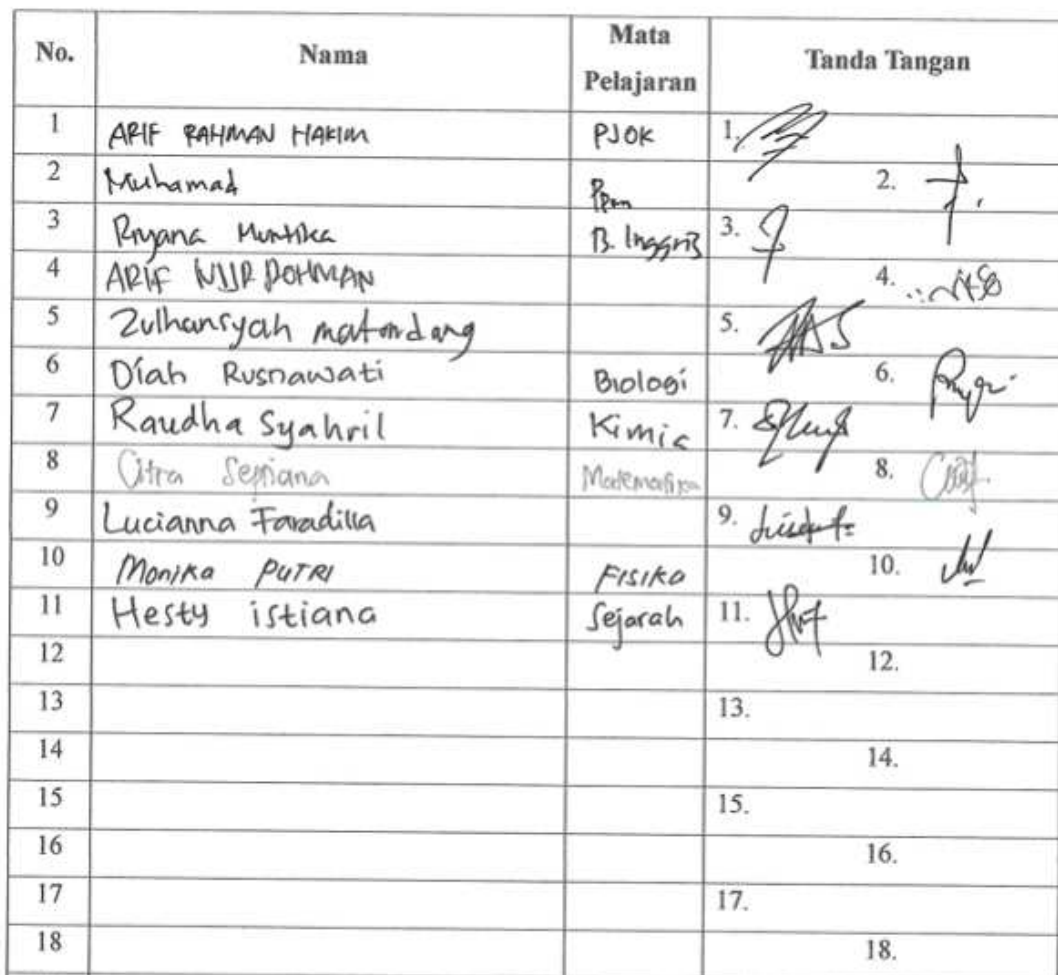 No. Nama Mata Pelajaran Tanda Tangan
1 ARIF RAHMAN HAKIM PJOK 1.
2 Muhamad 2.
3 Riyana Muntika B. Inggris 3.
4 ARIF NUR ROHMAN 4.
5 Zulhansyah matondang 5.
6 Diah Rusnawati Biologi 6.
7 Raudha Syahril Kimia 7.
8 Citra Septiana Matematika 8.
9 Lucianna Faradilla 9.
10 Monika PUTRI FISIKA 10.
11 Hesty istiana Sejarah 11.
12 12.
13 13.
14 14.
15 15.
16 16.
17 17.
18 18.